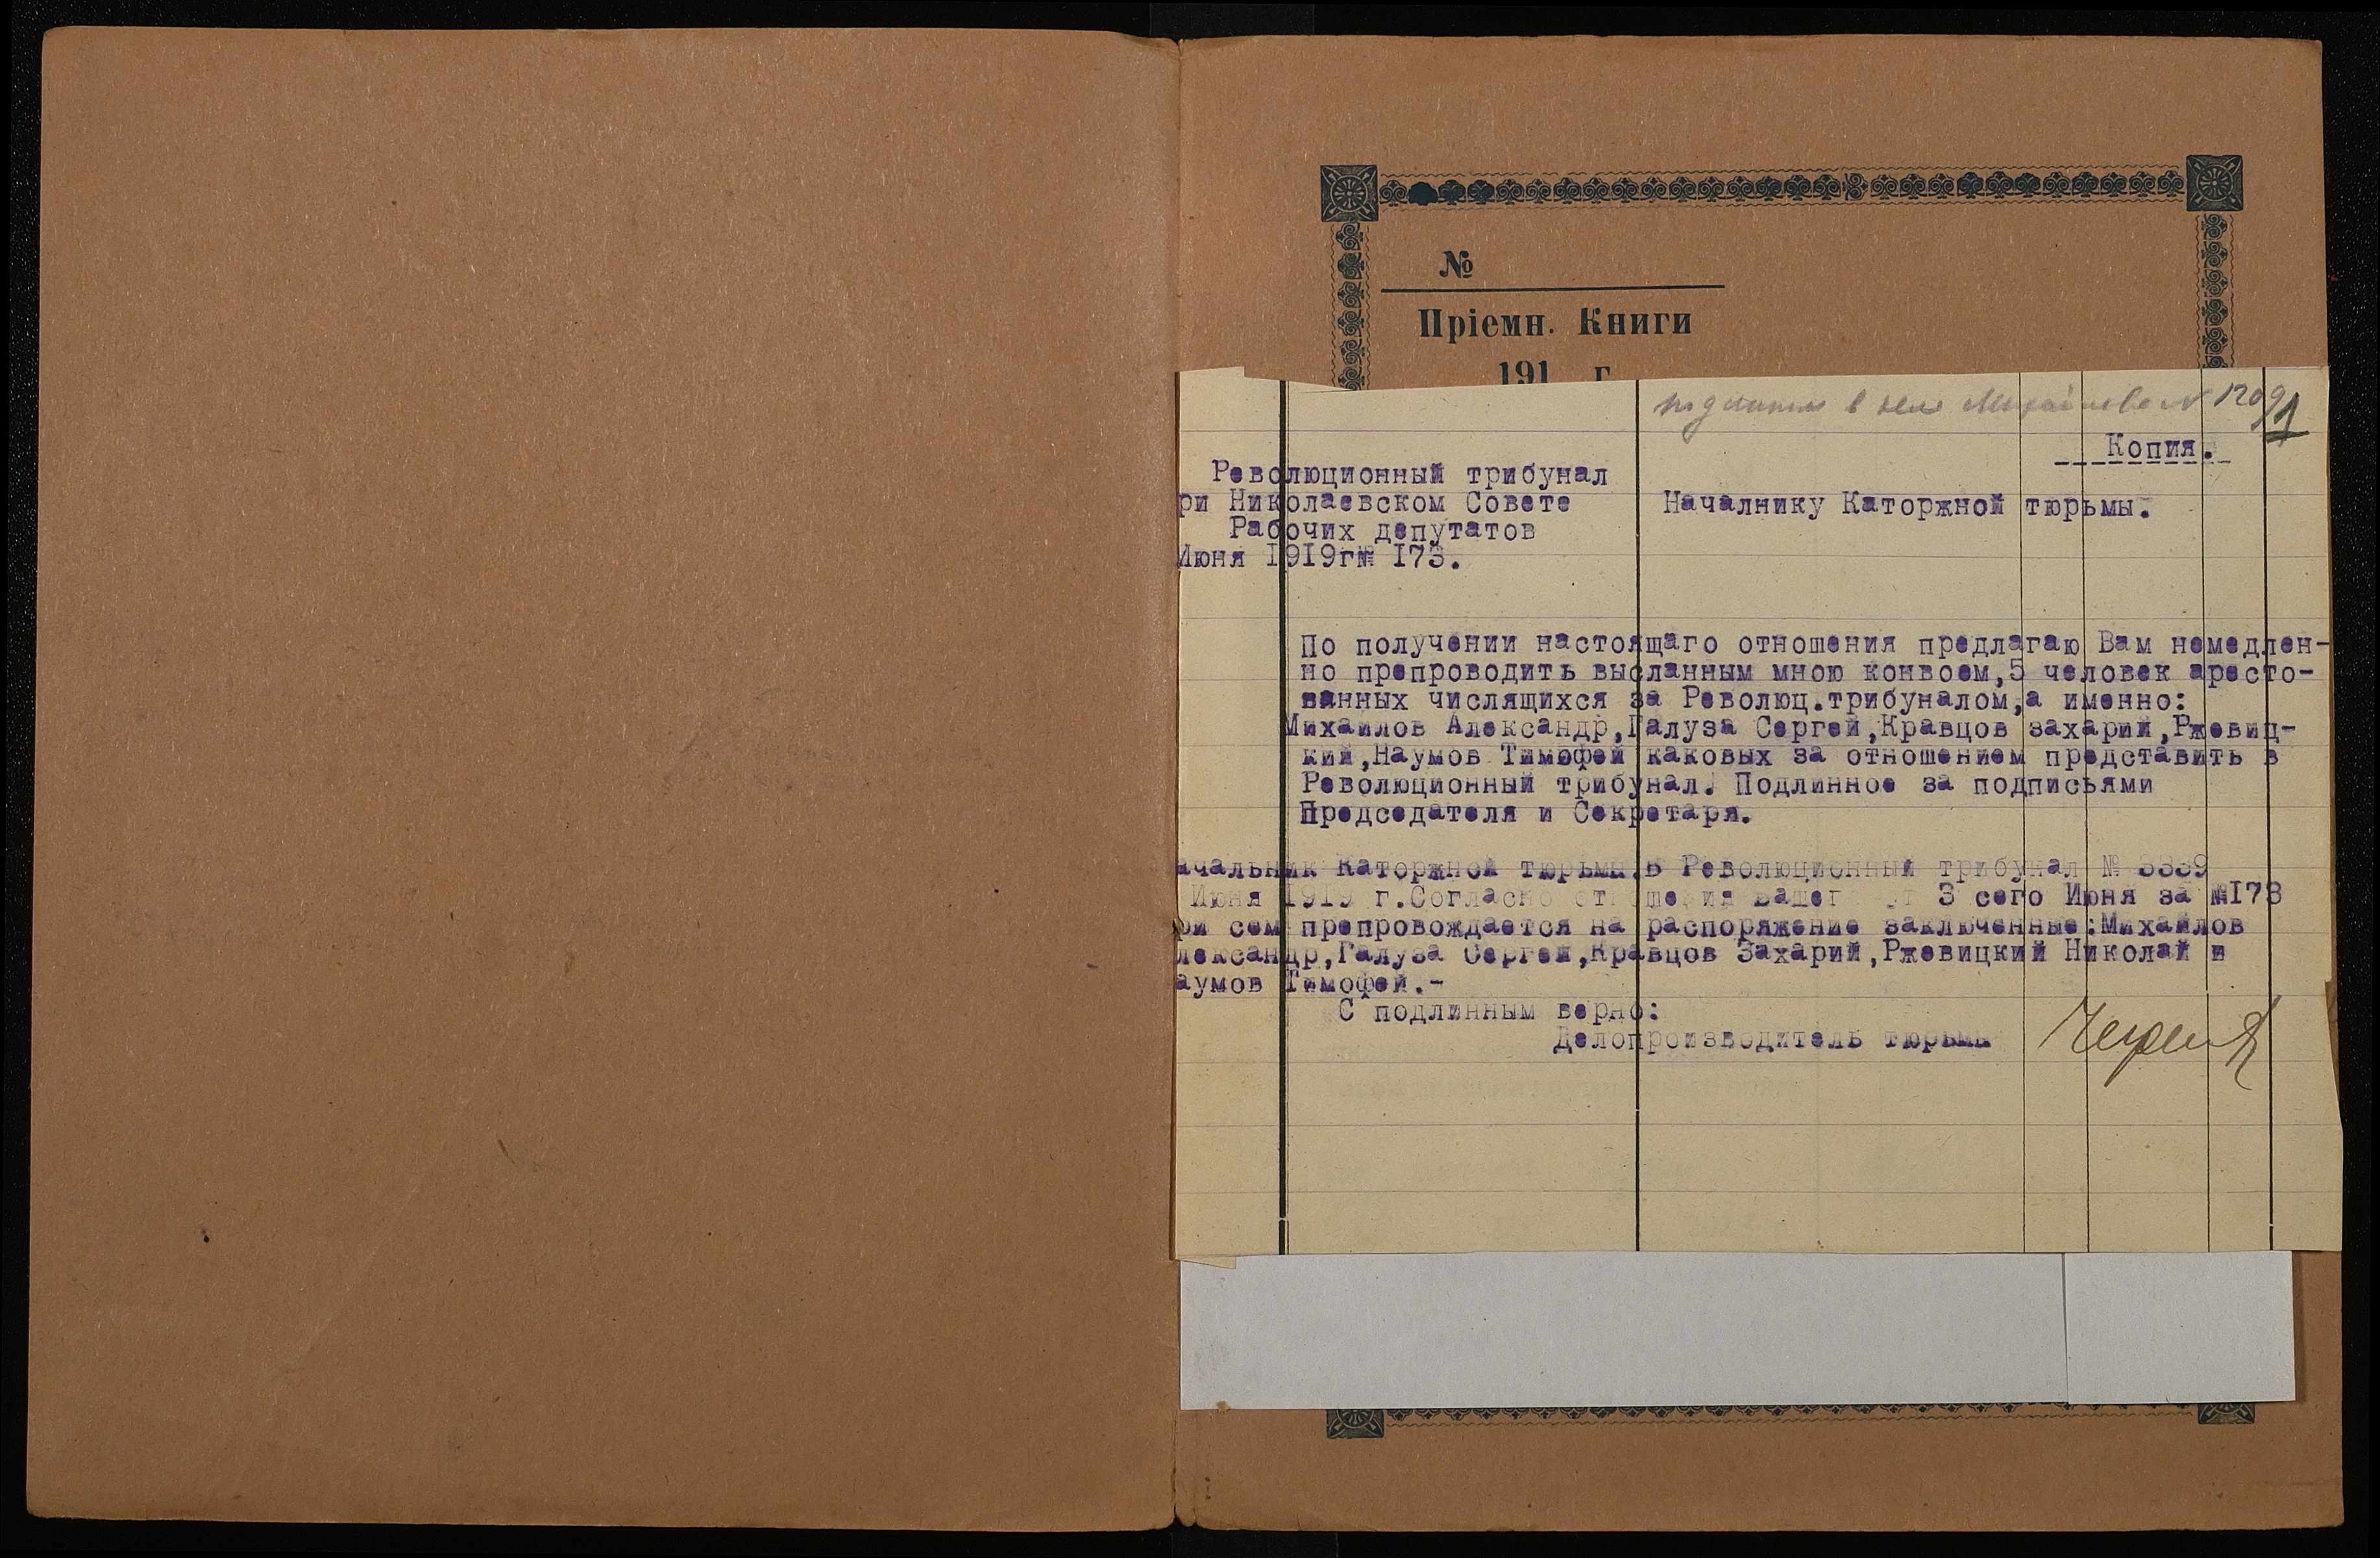 №
Пріемн. Книги
191 г
в деле № 1209
1
Копия.
Революционный трибунал
ри Николаевском Совете
Началнику Каторжной тюрьмы.
Рабочих депутатов
Июня 1919г№ 173.
По получении настоящаго отношения предлагаю Вам немедлен-
но препроводить высланным мною конвоем,5 человек аресто-
ванных числящихся за Революц.трибуналом,а именно:
Михайлов Александр,Галуза Сергей,Кравцов захарий,Ржевиц-
кий,Наумов Тимофей каковых за отношением представить в
Революционный трибунал. Подлинное за подписьями
Председателя и Секретаря.
ачальник Каторжной тюрьмы.В Революционный трибунал № 3339
Июня 1919 г.Согласно от шения вашег от 3 сего Июня за №173
ри сем препровождается на распоряжение заключенные:Михайлов
лександр,Галуза Сергей,Кравцов Захарий,Ржевицкий Николай и
аумов Тимофей.-
С подлинным верно:
Делопроизводитель тюрьмы